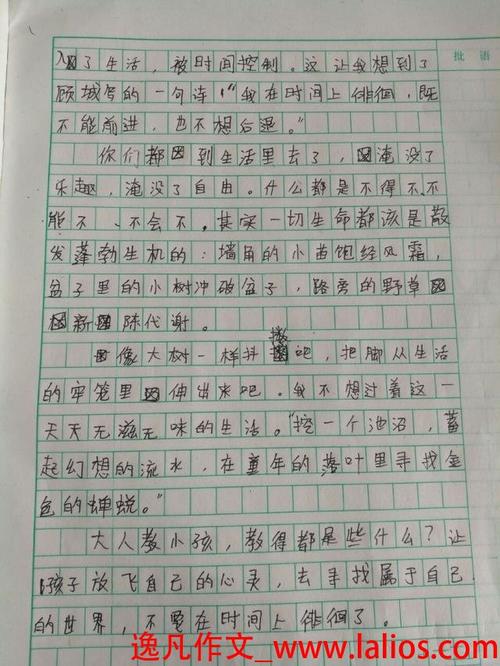 批语
入了生活，被时间控制。这让我想到了
顾城写的一句诗："我在时间上徘徊，既
不能前进，也不想后退。"
你们都到生活里去了，淹没了
乐趣，淹没了自由。什么都是不得不、不
能不、不会不。其实一切生命都该是散
发蓬勃生机的：墙角的小苗饱经风霜，
盆子里的小树冲破盆子，路旁的野草
新陈代谢。
像大树一样抖擞吧，把脚从生活
的牢笼里伸出来吧。我不想过着这一
天天无滋无味的生活。"挖一个池沼，蓄
起幻想的流水，在童年的落叶里寻找金
色的蝉蜕。"
大人教小孩，教得都是些什么？让
孩子放飞自己的心灵，去寻找属于自己
的世界，不要在时间上徘徊了。
逸凡作文_www.lalios.com